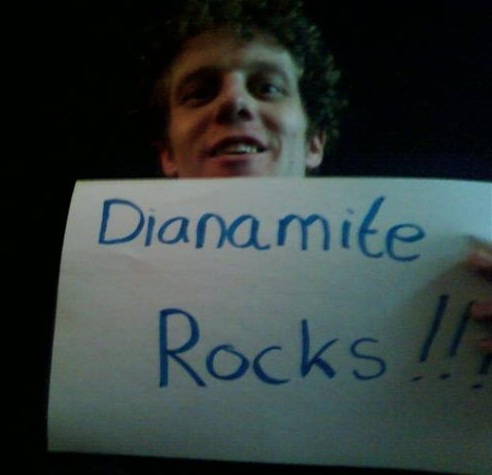 Dianamite
Rocks!!!